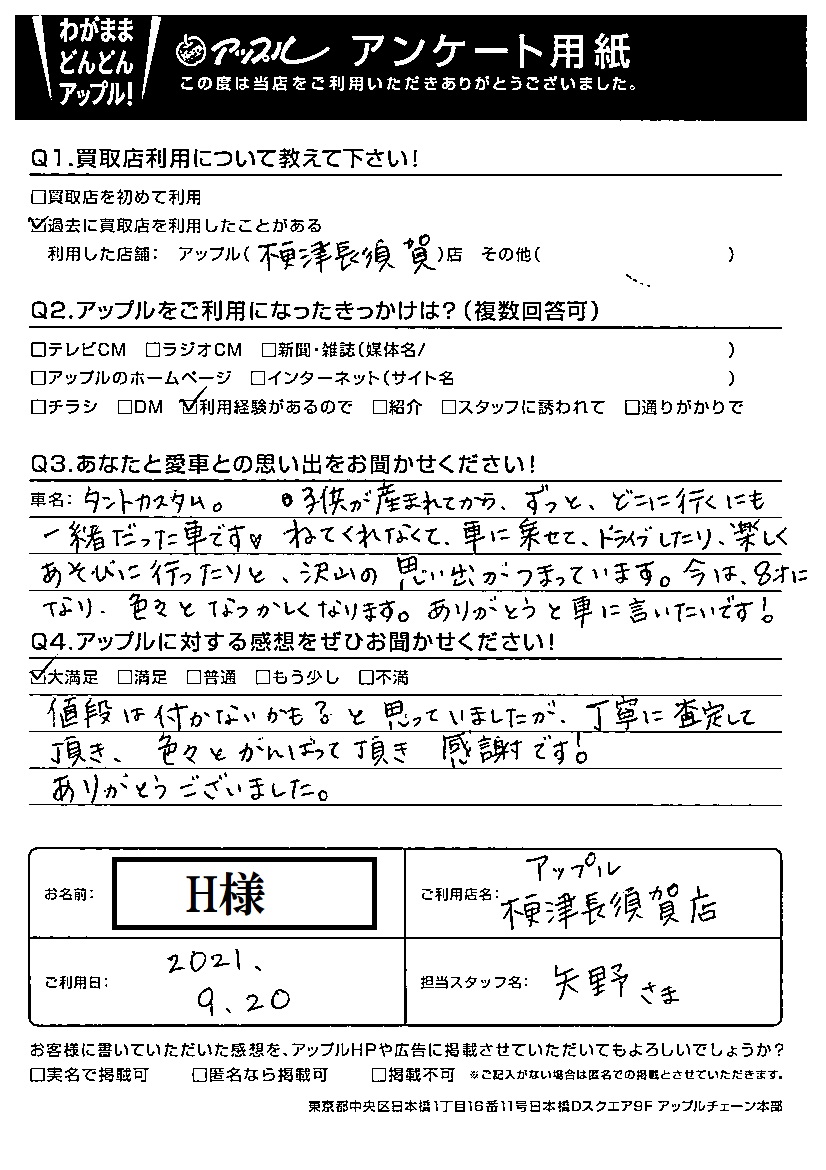 わがまま
どんどん
アップル!
アップル アンケート用紙
この度は当店をご利用いただきありがとうございました。
Q1.買取店利用について教えて下さい!
□買取店を初めて利用
☑過去に買取店を利用したことがある
利用した店舗: アップル(木更津長須賀)店 その他( )
Q2.アップルをご利用になったきっかけは?(複数回答可)
□テレビCM □ラジオCM □新聞・雑誌(媒体名/ )
□アップルのホームページ □インターネット(サイト名 )
□チラシ □DM ☑利用経験があるので □紹介 □スタッフに誘われて □通りがかりで
Q3.あなたと愛車との思い出をお聞かせください!
車名: タントカスタム。 ●子供が産まれてから、ずっと、どこに行くにも
一緒だった車です♡ ねてくれなくて、車に乗せて、ドライブしたり、楽しく
あそびに行ったりと、沢山の思い出がつまっています。今は、8才に
なり、色々となつかしくなります。ありがとうと車に言いたいです!
Q4.アップルに対する感想をぜひお聞かせください!
☑大満足 □満足 □普通 □もう少し □不満
値段は付かないかも?と思っていましたが、丁寧に査定して
頂き、色々とがんばって頂き 感謝です!
ありがとうございました。
お名前: H様
ご利用店名: アップル
木更津長須賀店
ご利用日: 2021、
9、20
担当スタッフ名: 矢野さま
お客様に書いていただいた感想を、アップルHPや広告に掲載させていただいてもよろしいでしょうか?
□実名で掲載可 □匿名なら掲載可 □掲載不可 ※ご記入がない場合は匿名での掲載とさせていただきます。
東京都中央区日本橋1丁目16番11号日本橋Dスクエア9F アップルチェーン本部